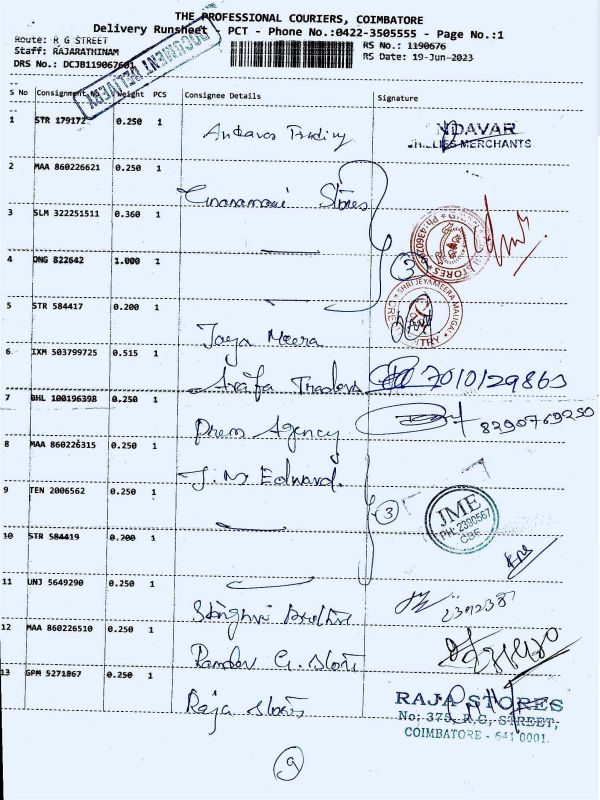 THE PROFESSIONAL COURIERS, COIMBATORE
Delivery Runsheet PCT - Phone No.:0422-3505555 - Page No.:1
Route: R G STREET
Staff: RAJARATHINAM
DRS No.: DCJB119067601
RS No.: 1190676
RS Date: 19-Jun-2023
DOCUMENT DELIVERY
S No Consignment Weight PCS Consignee Details Signature
1 STR 179172 0.250 1 Andavar Trading NDAVAR
MERCHANTS
2 MAA 860226621 0.250 1 Stores
3 SLM 322251511 0.360 1
4 DNG 822642 1.000 1 3
SHRI JEYAMEERA MALIGAI
5 STR 584417 0.200 1 Jaya Meera
6 IXM 503799725 0.515 1 Arafa Traders 7010129863
7 BHL 100196398 0.250 1 Prem Agency 8290769250
8 MAA 860226315 0.250 1 J. M. Edward.
9 TEN 2006562 0.250 1 3
JME
PH: 2390567
CBE
10 STR 584419 0.200 1
11 UNJ 5649290 0.250 1 Singhvi 2392387
12 MAA 860226510 0.250 1 G. Stores
13 GPM 5271867 0.250 1 Raja Stores
RAJA STORES
No: 375, R.G. STREET,
COIMBATORE - 641 0001.
9